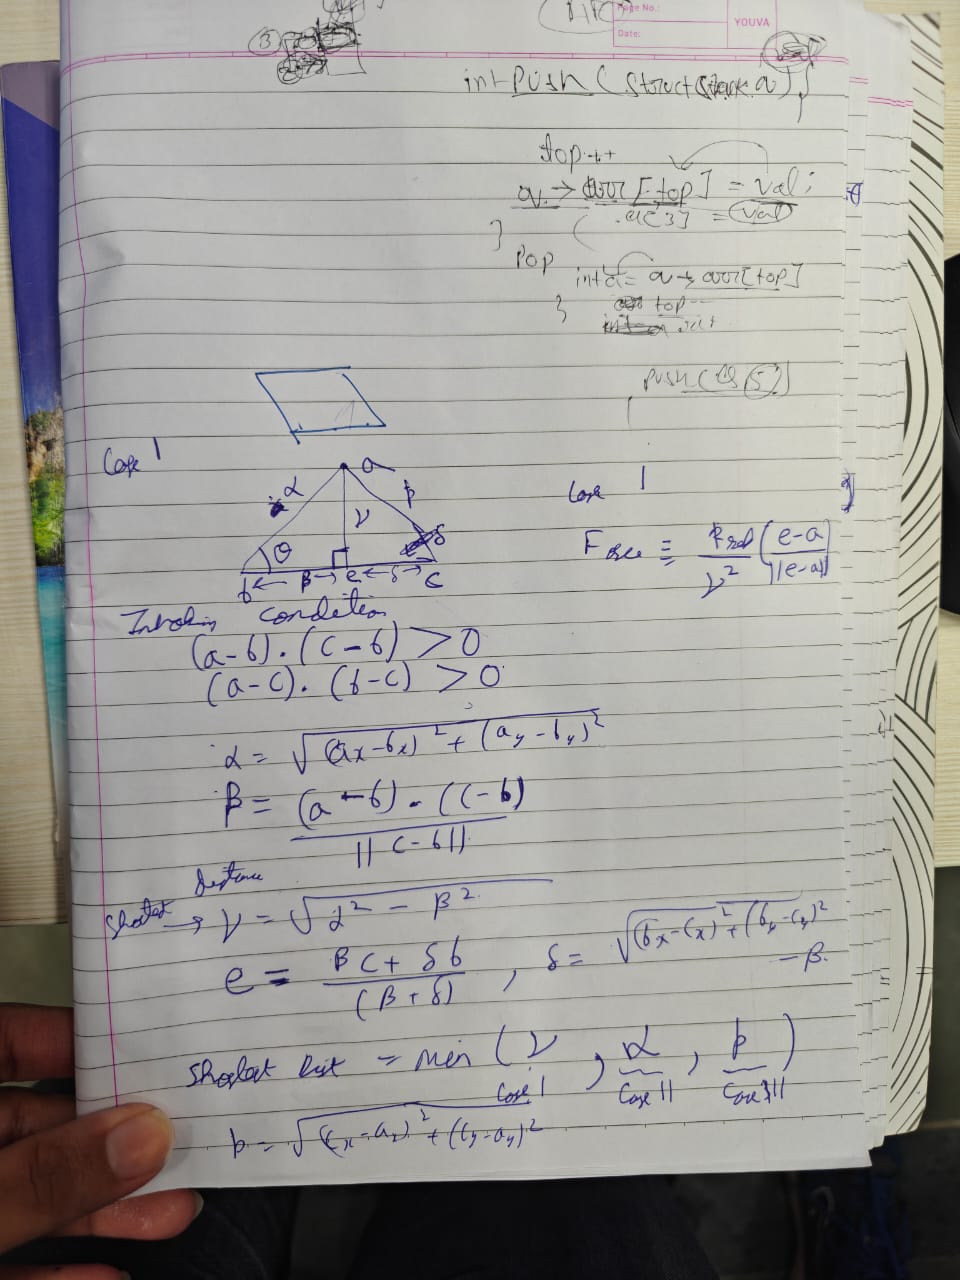 Page No.:
Date:
YOUVA
3
int push (struct stack a) {
top++
a → arr [top] = val;
a[3] = val
}
Pop
int a = a → arr[top]
top--
}
push(&s 5)
Case 1
α a p
γ
θ
b ← β → e ← δ → c
Case 1
F ≡ (e-a)
γ² ||e-a||
condition
(a-b). (c-b) > 0
(a-c). (b-c) > 0
α = √(ax-bx)² + (ay-by)²
β = (a-b) . (c-b)
||c-b||
Shortest Distance → γ = √α² - β²
e = βc + δb , δ = √(bx-cx)² + (by-cy)² - β.
(β + δ)
Shortest Dist = min (γ, α, p)
Case I Case II Case III
p = √(cx-ax)² + (cy-ay)²